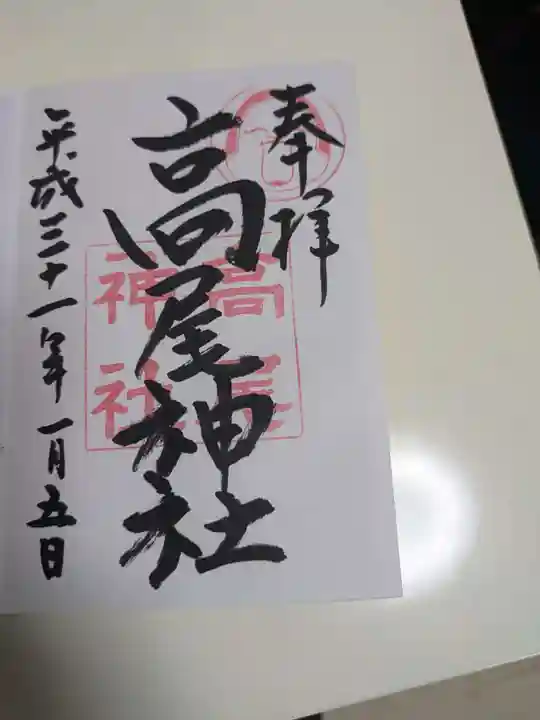 奉拝
高尾神社
高尾
神社
平成三十一年一月五日